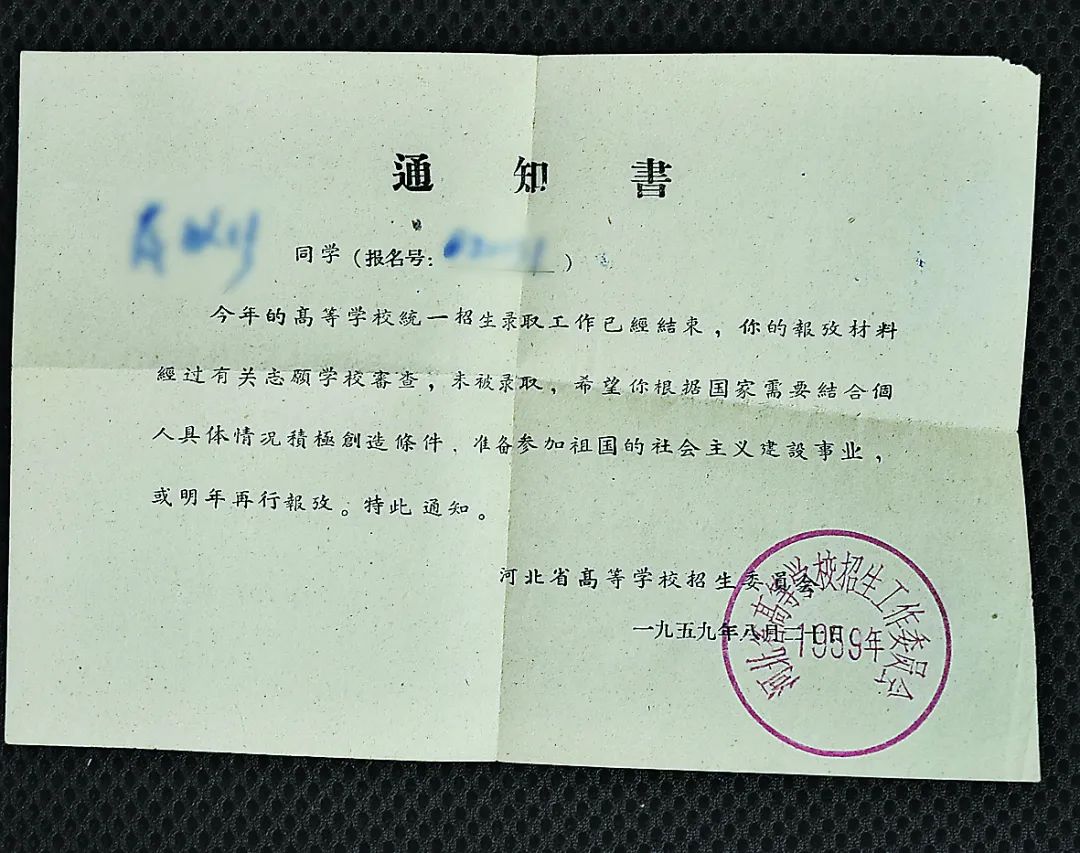 通知書
同学（报名号：）
今年的高等学校統一招生录取工作已經結束，你的報攷材料
經过有关志願学校審查，未被录取，希望你根据国家需要結合個
人具体情况積極創造條件，准备参加祖国的社会主义建設事业，
或明年再行報攷。特此通知。
河北省高等学校招生委員会
一九五九年八月二十日
河北省高等学校招生工作委員会
1959年